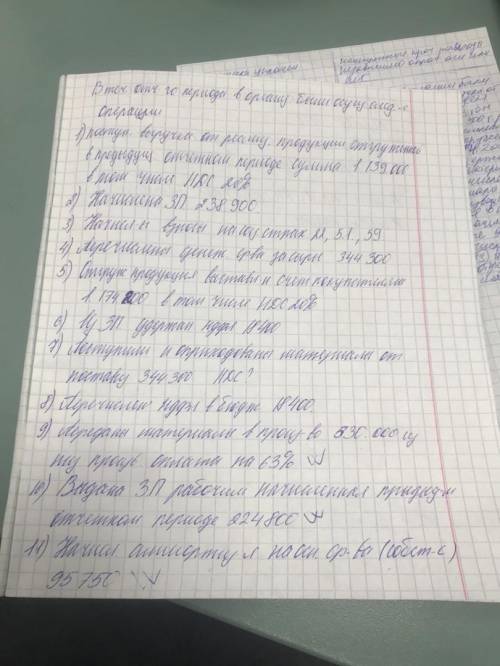 В теч отч го периода в организ были осуществл-е
операции
1) поступ. выручка от реализ. продукции отгруженной
в предыдущ отчетном периоде сумма 1 139 000
в том числе НДС 20%
2) Начислена ЗП 238 900.
3) Начисл-ы взносы на соц страх 22, 5.1, 59.
4) Перечислены денеж. ср-ва за сырье 344 300
5) Отгруж продукция выставлен счет покупателям
1 174 200 в том числе НДС 20%
6) Из ЗП удержан ндфл 18400
7) Поступили и оприходованы материалы от
поставщ 344 300 НДС?
8) Перечислен ндфл в бюдж 18400.
9) Переданы материалы в произ-во 530.000
оплата на 63%
10) Выдана ЗП рабочим начисленная предыдущ
отчетном периоде 224800
11) Начисл амортиз-я на осн. ср-ва (собст-е)
95750